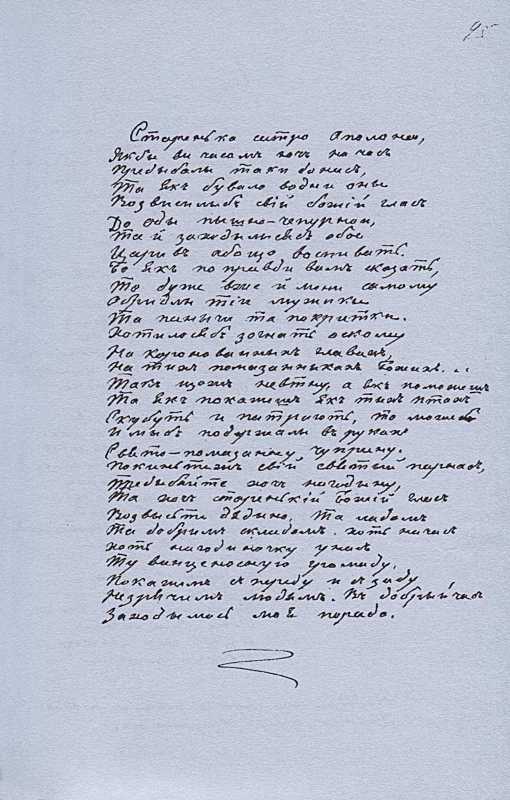 95
Старенька сестро Аполона,
Якбы ви часомъ хочь на часъ
Придыбалы таки до насъ,
Та якъ бувало во дни оны
Возвисилыбъ свій божій гласъ
До оды пышно-чепурнои,
Та й заходылисябъ обое
Царивъ абощо воспивать.
Бо якъ по правди вамъ сказать,
То дуже вже й мени самому
Обридлы тіи мужики
Та панычи та покритки.
Хотилосябъ зогнать оскому
На коронованыхъ главахъ,
На тихъ помазанникахъ Божихъ...
Такъ щожъ невтну, а якъ поможешъ
Та якъ покажешъ якъ тихъ птахъ
Скубуть и патрають, то можебъ
И мыбъ подержали въ рукахъ
Свято-помазанну чуприну.
Покиньтежъ свій святый парнасъ,
Придыбайте хочъ на годыну,
Та хочъ старенькій Божій гласъ
Возвысьте дядыно. Та ладомъ
Та добримъ складомъ хоть на часъ
Хоть на годиночку у насъ
Ту винценосную громаду.
Покажимъ спереду и сзаду
Незрячимъ людямъ. Въ добрый часъ
Заходымось моя порадо.